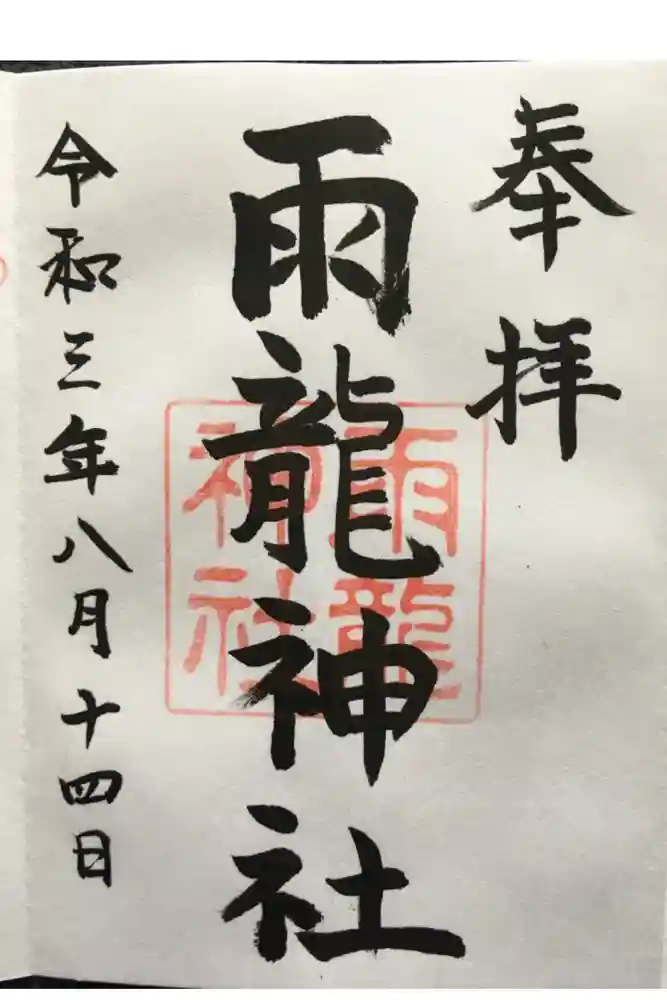 奉拝
雨龍神社
雨龍
神社
令和三年八月十四日